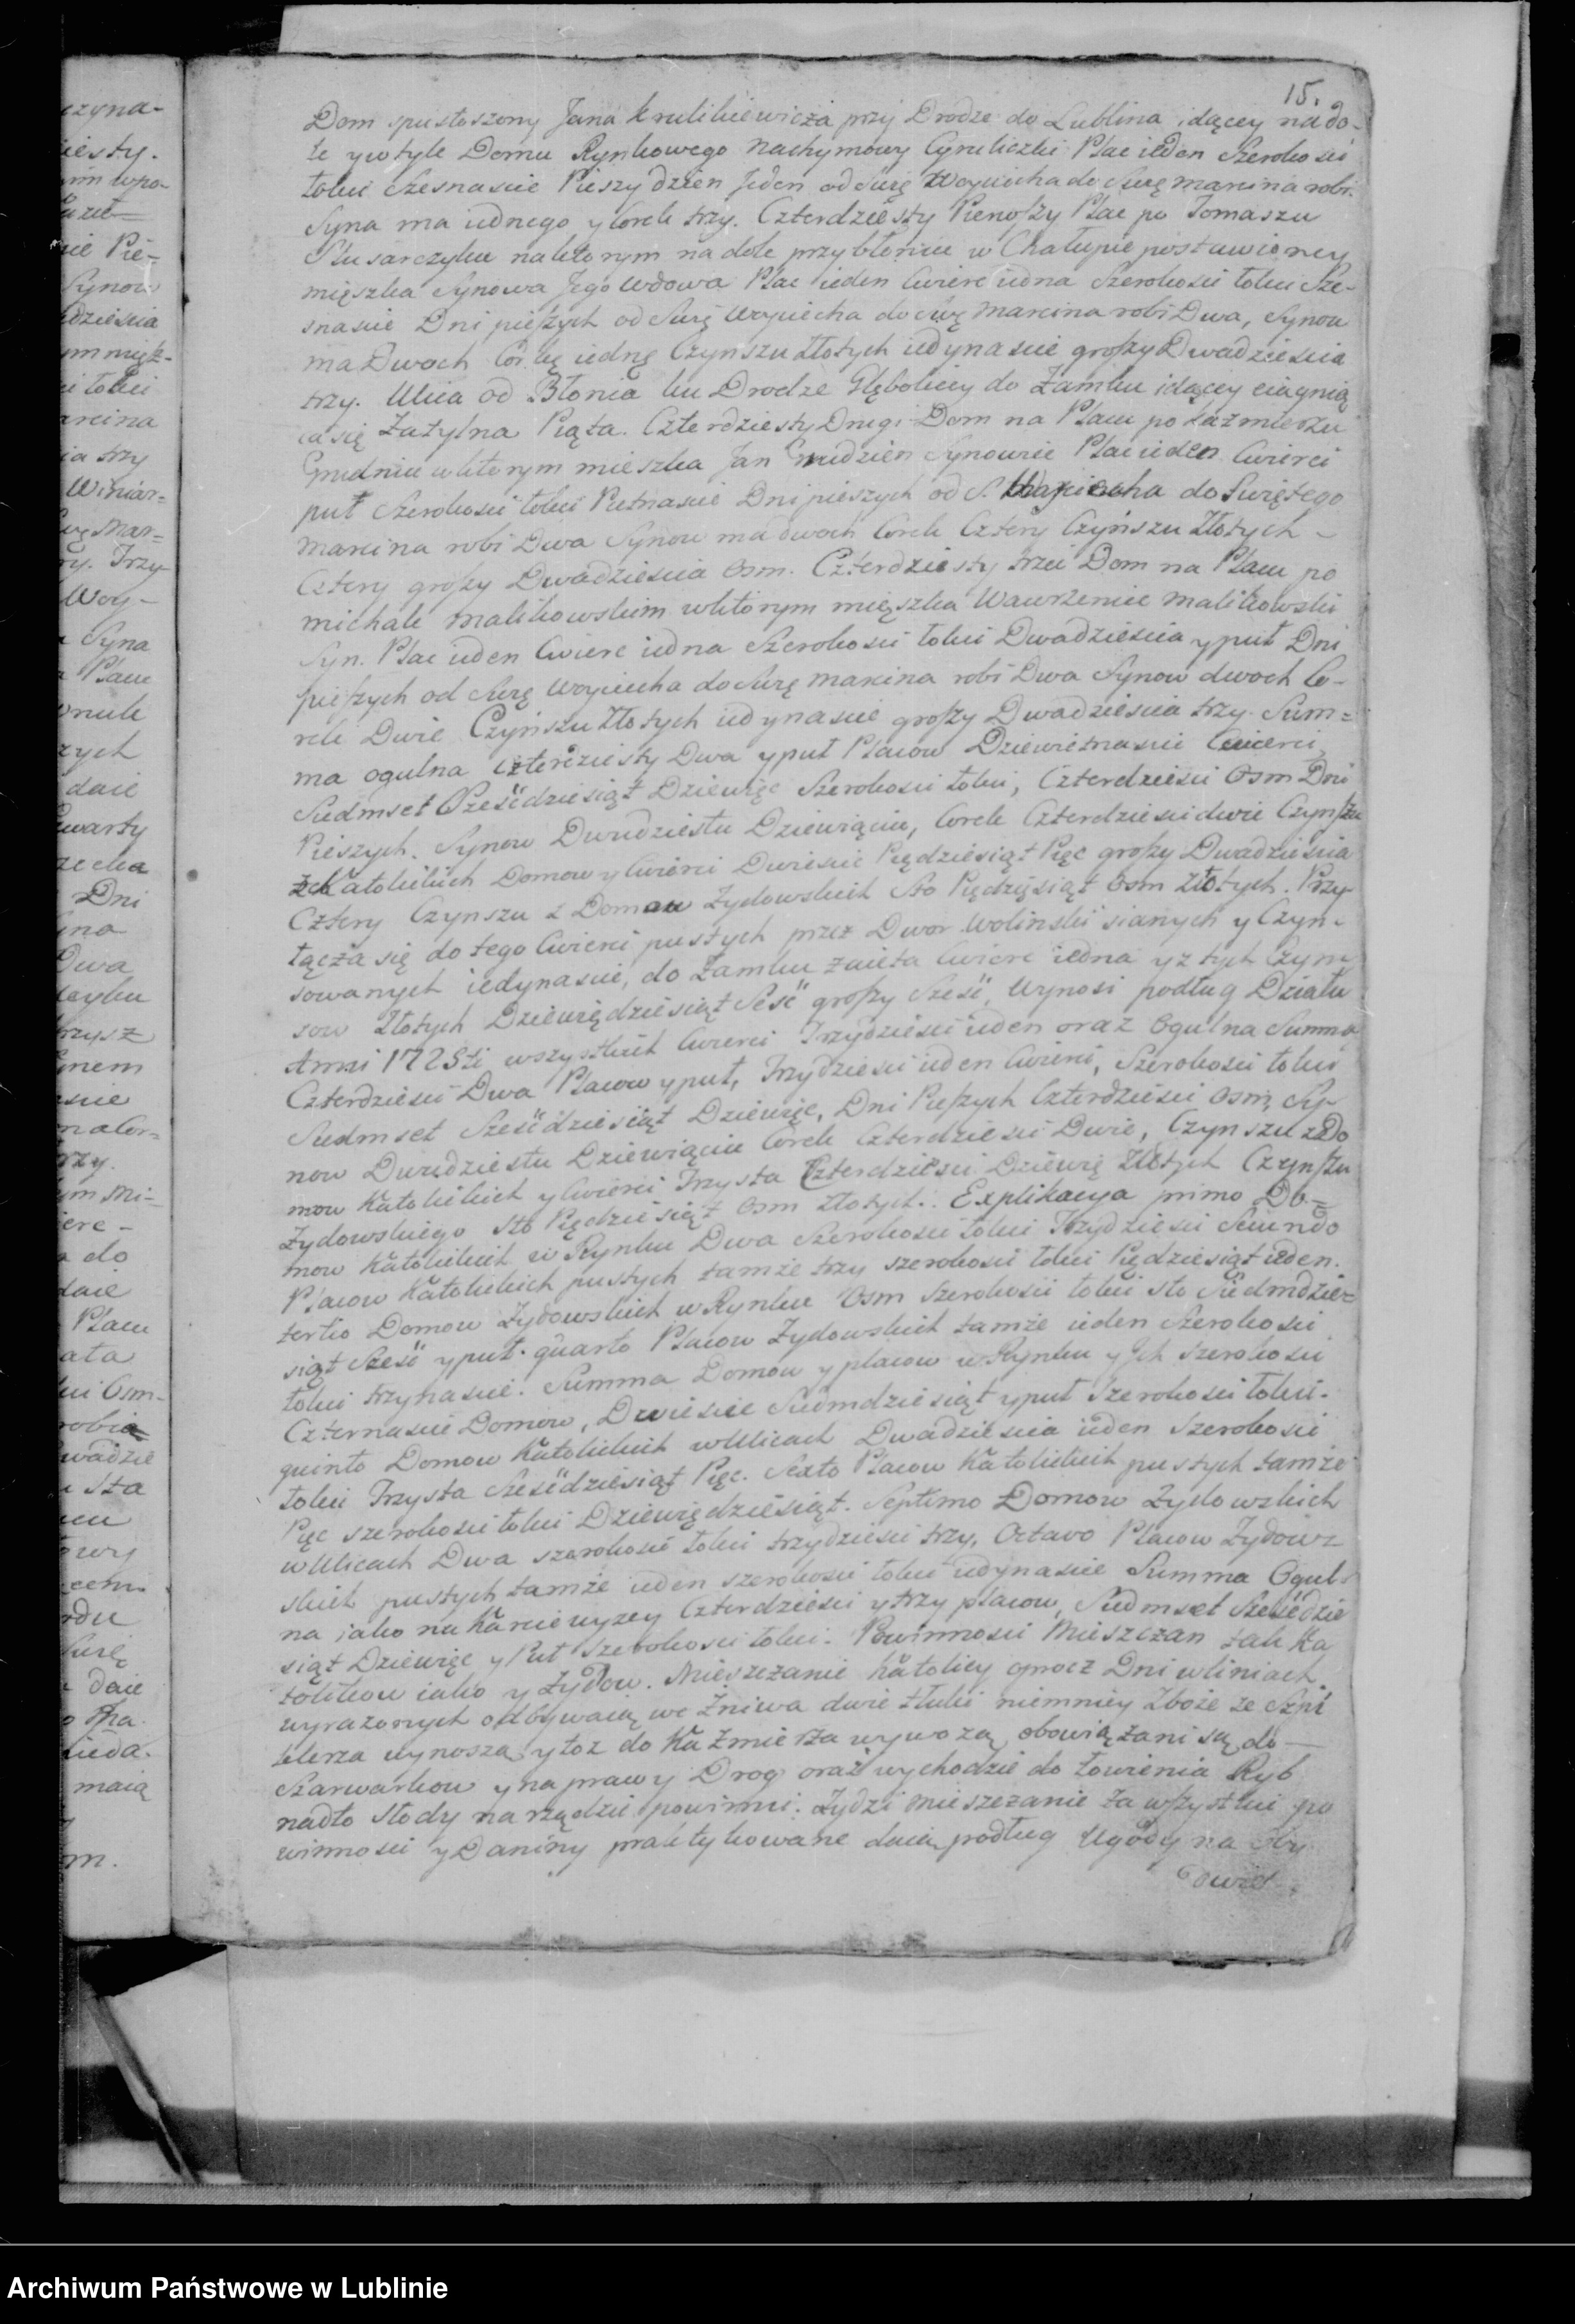 15.
Dom spustoszony Jana Krulikiewicza przy Drodze do Lublina idącey na do-
le y w tyle Domu Rynkowego Nachymowy Cyruliczki Plac ieden Szerokosci
łokci szesnascie Pieszy dzien Jeden od Swię Woyciecha do Swię Marcina robi.
Syna ma iednego y Corek trzy. Czterdziesty Pierwszy Plac po Tomaszu
Slusarczyku na ktorym na dole przy błoniu w Chałupie postawioney
mięszka Synowa Jego Wdowa Plac ieden Cwierc iedna Szerokosci łokci Sze-
snascie Dni pieszych od Swię Woyciecha do Swię Marcina robi Dwa, Synow
ma Dwoch Corkę iednę Czynszu Złotych iedynascie groszy Dwadziescia
trzy. Ulica od Błonia ku Drodze Głębokiey do Zamku idącey ciągnią
ca się Zatylna Piąta. Czterdziesty Drugi Dom na Placu po Kazmierzu
Grudniu w ktorym mieszka Jan Grudzien Synowiec Plac ieden Cwierci
puł Szerokosci łokci Pietnascie Dni pieszych od S. Woyciecha do Swiętego
Marcina robi Dwa Synow ma dwoch Corek Cztery Czynszu Złotych -
Cztery groszy Dwadziescia Osm. Czterdziesty trzeci Dom na Placu po
Michale Malikowskim w ktorym mięszka Wawrzeniec Malikowski
Syn. Plac ieden Cwierc iedna Szerokosci łokci Dwadziescia y puł Dni
pieszych od Swię Woyciecha do Swię Marcina robi Dwa Synow dwoch Co-
rek Dwie Czynszu Złotych iedynascie groszy Dwadziescia trzy. Sum=
ma ogulna Czterdziesty Dwa y puł Placow Dziewietnascie Cwierci,
Siedmset Sześćdziesiąt Dziewięc Szerokosci łokci, Czterdziesci Osm Dni
Pieszych. Synow Dwudziestu Dziewiąciu, Corek Czterdziesci dwie Czynszu
z Katolickich Domow y Cwierci Dwiescie Pięcdziesiąt Pięc groszy Dwadziescia
Cztery Czynszu z Domow Zydowskich Sto Pięcdziesiąt Osm Złotych. Przy-
łącza się do tego Cwierci pustych przez Dwor Wolinski sianych y Czyn-
sowanych iedynascie, do Zamku zaięta Cwierc iedna y z tych Czyn-
sow Złotych Dziewiędziesiąt Seść groszy Sześć, Wynosi podług Działu
Anni 1725ti wszystkich Cwierci Trzydziesci ieden oraz Ogulna Summa
Czterdziesci Dwa Placow y puł, Trzydziesci ieden Cwierci, Szerokosci łokci
Siedmset Sześćdziesiąt Dziewięc, Dni Pieszych Czterdziesci Osm, Sy-
now Dwudziestu Dziewiąciu Corek Czterdziesci Dwie, Czynszu z Do
mow Katolickich y Cwierci Trzysta Czterdziesci Dziewię Złotych Czynszu
Zydowskiego Sto Pięcdziesiąt Osm Złotych. Explikacya primo Do=
mow Katolickich w Rynku Dwa Szerokosci łokci Trzydziesci Secundo
Placow Katolickich pustych tamze trzy szerokosci łokci Pięcdziesiąt ieden.
tertio Domow Zydowskich w Rynku Osm Szerokosci łokci sto Siedmdzie=
siąt Sześć y puł. quarto Placow Zydowskich tamże ieden Szerokosci
łokci trzynascie. Summa Domow y placow w Rynku y Jch Szerokosci
Czternascie Domow, Dwiescie Siedmdziesiąt y puł Szerokosci łokci.
quinto Domow Katolickich w Ulicach Dwadziescia ieden Szerokosci
łokci Trzysta Sześćdziesiąt Pięc. Sexto Placow Katolickich pustych tamże
Pięc szerokosci łokci Dziewiędziesiąt. Septimo Domow Zydowskich
w Ulicach Dwa szerokosci łokci trzydziesci trzy, Octavo Placow Zydow=
skich pustych tamże ieden szerokosci łokci iedynascie Summa Ogul-
na iako na Karcie wyzey Czterdziesci y trzy placow, Siedmset Sześćdzie
siąt Dziewięc y Puł Szerokosci łokci. Powinnosci Mieszczan tak Ka
tolikow iako y Zydow. Mieszczanie Katolicy oprocz Dni w liniach
wyrazonych odbywaią we Zniwa dwie tłuki niemniey Zboże ze Szpi
klerza wynoszą y toz do Kazmierza wywozą, obowiązani są do
Szarwarkow y naprawy Drog oraz wychodzic do łowienia Ryb
nadto Słody na rządzie powinni. Zydzi Mieszczanie za wszystkie po
winnosci y Daniny praktykowane daią podług Ugody na Ży
dowie
Archiwum Państwowe w Lublinie